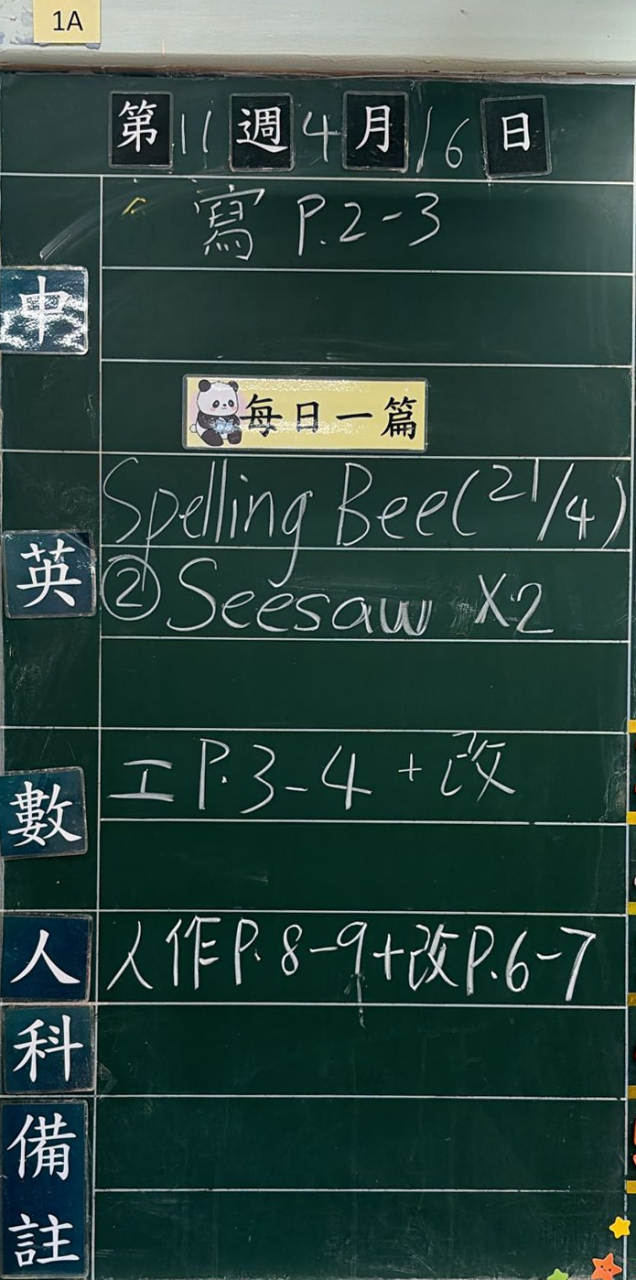 1A
第11週4月16日
中
寫 P.2-3
每日一篇
英
Spelling Bee(21/4)
② Seesaw X2
數
工 P.3-4 + 改
人
人作P.8-9+改P.6-7
科
備註